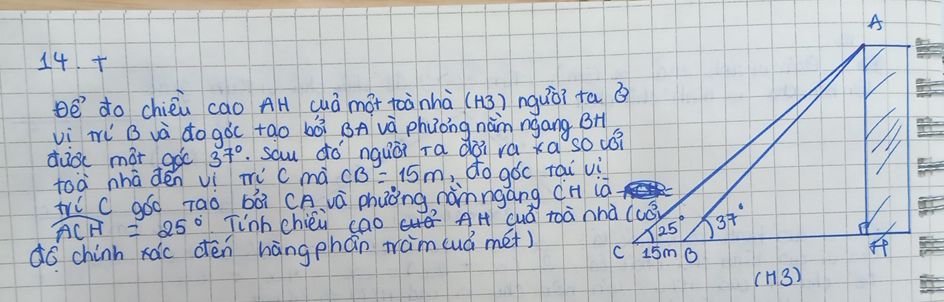 14. +
Để đo chiều cao AH cuả một toà nhà (H3) người ta ở
vị trí B và đo góc tạo bởi BA và phương nằm ngang BH
được một góc 37°. Sau đó người ta dời ra xa so với
toà nhà đến vị trí C mà CB = 15m, đo góc tại vị
trí C góc tạo bởi CA và phương nằm ngang CH là
ACH = 25° Tính chiều cao AH cuả toà nhà (với
độ chính xác đến hàng phần trăm cuả mét)
A
25°
37°
C 15m B H
(H3)